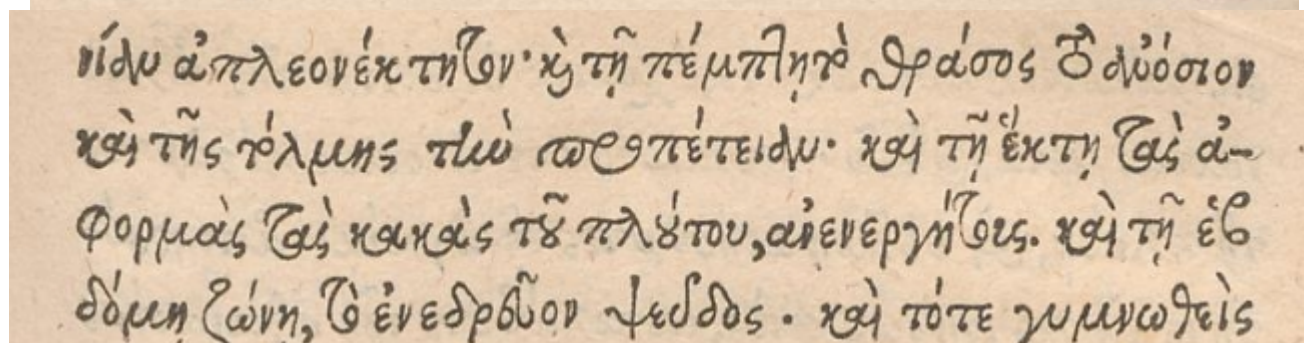 νίαν ἀπλεονέκτητον· καὶ τῇ πέμπτῃ τὸ θράσος τὸ ἀνόσιον
καὶ τῆς τόλμης τὴν προπέτειαν· καὶ τῇ ἕκτῃ τὰς ἀ-
φορμὰς τὰς κακὰς τοῦ πλούτου, ἀνενεργήτους. καὶ τῇ ἑβ
δόμῃ ζώνῃ, τὸ ἐνεδρεῦον ψεῦδος. καὶ τότε γυμνωθεὶς